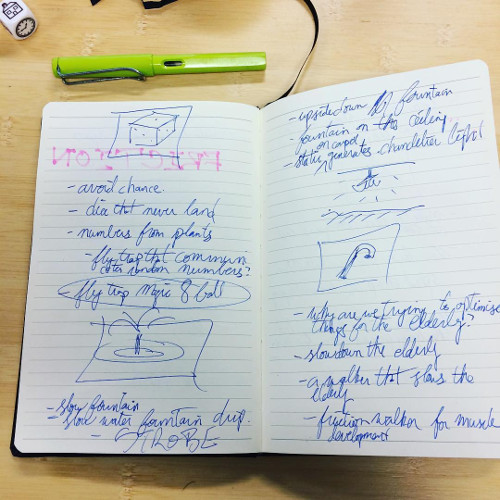 FRICTION
- avoid chance
- dice that never land
- numbers from plants
- fly trap that
random numbers?
fly trap magic 8 ball
- slow fountain
- slow water fountain drip.
- STROBE
- upside down fountain
- fountain on the ceiling
- static on carpet generates chandelier light
- why are we trying to optimise
things for the elderly?
- slow down the elderly
- a walker that slows the
elderly
- friction walker for muscle
development